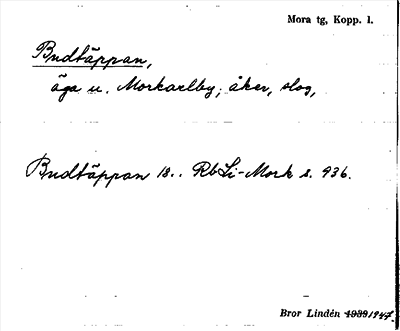 Mora tg, Kopp. l.
Budtäppan,
äga u. Morkarlby; åker, slog,
Budtäppan 13.. RbLi-Mork s. 936.
Bror Lindén 1939 1947.